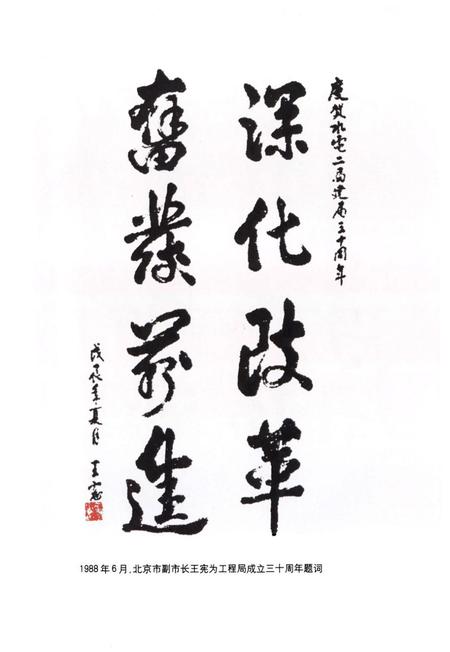 庆贺水电二局建局三十周年
深化改革
奋发前进
戊辰年夏月 王宪
1988年6月,北京市副市长王宪为工程局成立三十周年题词